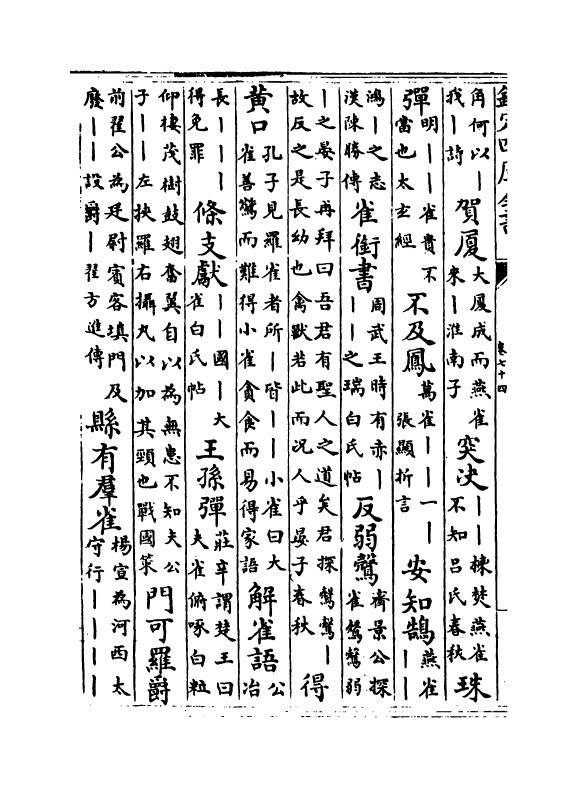 欽定四庫全書
卷七十四
角何以丨
我丨詩
賀厦
大厦成而燕雀
來丨淮南子
突决
丨丨棟焚燕雀
不知吕氏春秋
珠
彈
明丨丨雀貴不
當也太玄經
不及鳳
萬雀丨丨一丨
張顯折言
安知鵠
燕雀
丨丨
鴻丨之志
漢陳勝傳
雀銜書
周武王時有赤丨
丨丨之瑞白氏帖
反弱鷇
齊景公探
雀鷇鷇弱
丨之晏子再拜曰吾君有聖人之道矣君探鷇鷇丨
故反之是長幼也禽獸若此而况人乎晏子春秋
得
黄口
孔子見羅雀者所丨皆丨丨小雀曰大
雀善驚而難得小雀貪食而易得家語
解雀語
公
冶
長丨丨丨
得免罪
條支獻
丨丨國丨大
雀白氏帖
王孫彈
莊辛謂楚王曰
夫雀俯啄白粒
仰棲茂樹鼓翅奮翼自以為無患不知夫公
子丨丨左挾羅右攝丸以加其頸也戰國策
門可羅爵
前翟公為廷尉賓客填門及
廢丨丨設爵丨翟方進傳
縣有羣雀
楊宣為河西太
守行丨丨丨丨